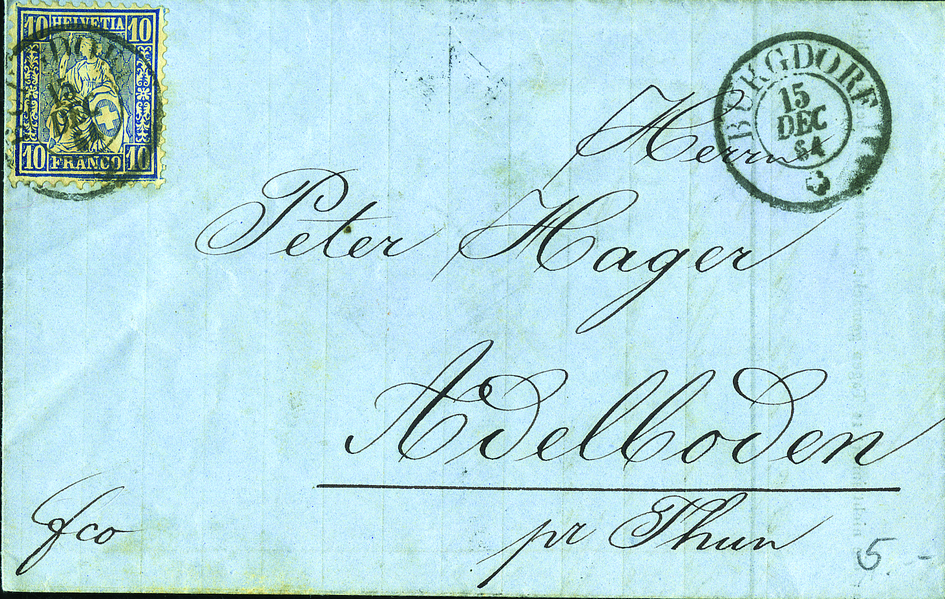 10 HELVETIA 10
10 FRANCO 10
15
DEC
BURGDORF
15
DEC
64
Herrn
Peter Hager
Adelboden
pr Thun
fco
5 -